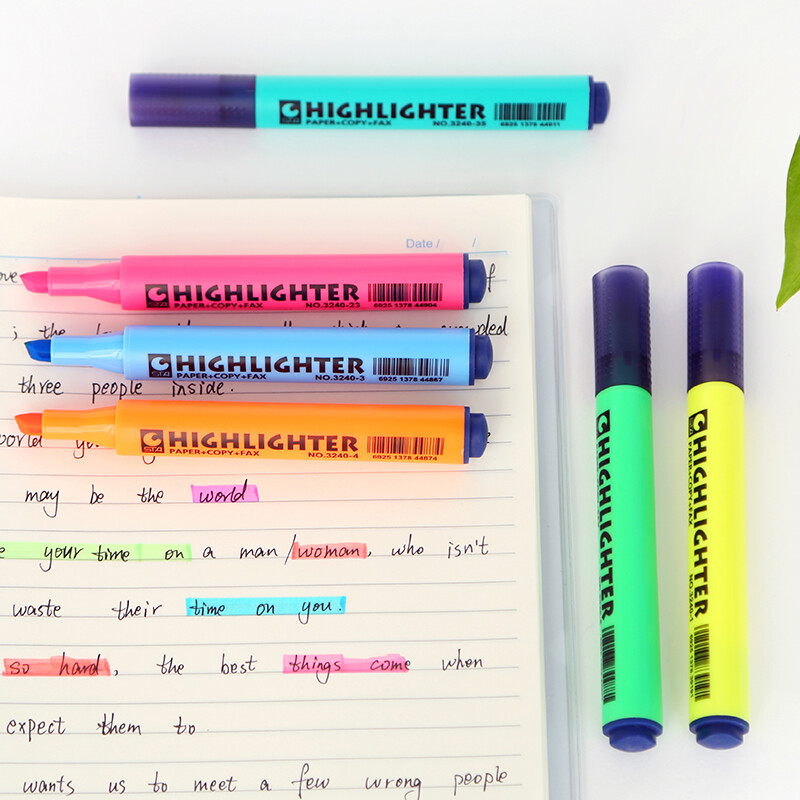 HIGHLIGHTER
PAPER+COPY+FAX NO.3240-35 6925 1378 44911
Date / /
HIGHLIGHTER
PAPER+COPY+FAX NO.3240-23 6925 1378 44904
; the
HIGHLIGHTER
PAPER+COPY+FAX NO.3240-3 6925 1378 44867
three people inside.
HIGHLIGHTER
PAPER+COPY+FAX NO.3240-4 6925 1378 44874
may be the world
your time on a man/woman, who isn't
waste their time on you.
so hard, the best things come when
expect them to
wants us to meet a few wrong people
HIGHLIGHTER
HIGHLIGHTER
PAPER+COPY+FAX NO.3240-1